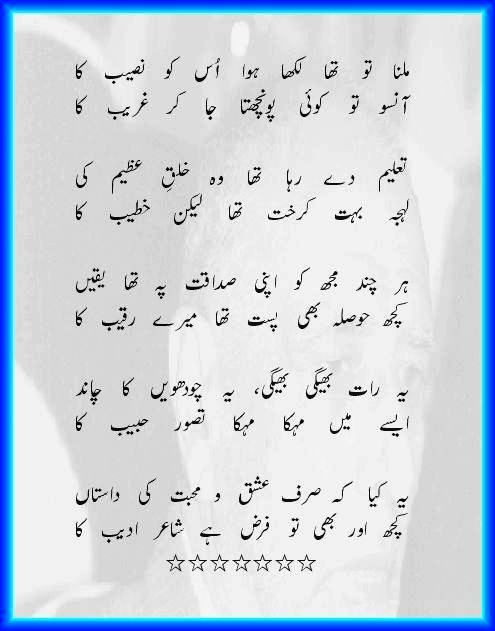 ملنا تو تھا لکھا ہوا اُس کو نصیب کا
آنسو تو کوئی پونچھتا جا کر غریب کا
تعلیم دے رہا تھا وہ خلقِ عظیم کی
لہجہ بہت کرخت تھا لیکن خطیب کا
ہر چند مجھ کو اپنی صداقت پہ تھا یقیں
کچھ حوصلہ بھی پست تھا میرے رقیب کا
یہ رات بھیگی بھیگی، یہ چودھویں کا چاند
ایسے میں مہکا مہکا تصور حبیب کا
یہ کیا کہ صرف عشق و محبت کی داستاں
کچھ اور بھی تو فرض ہے شاعر ادیب کا
☆☆☆☆☆☆☆